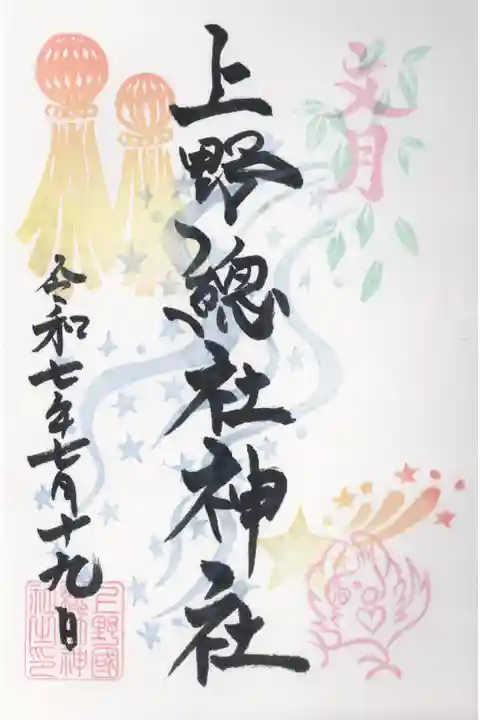 文月
上野總社神社
令和七年七月十九日
上野國
總社神
社之印